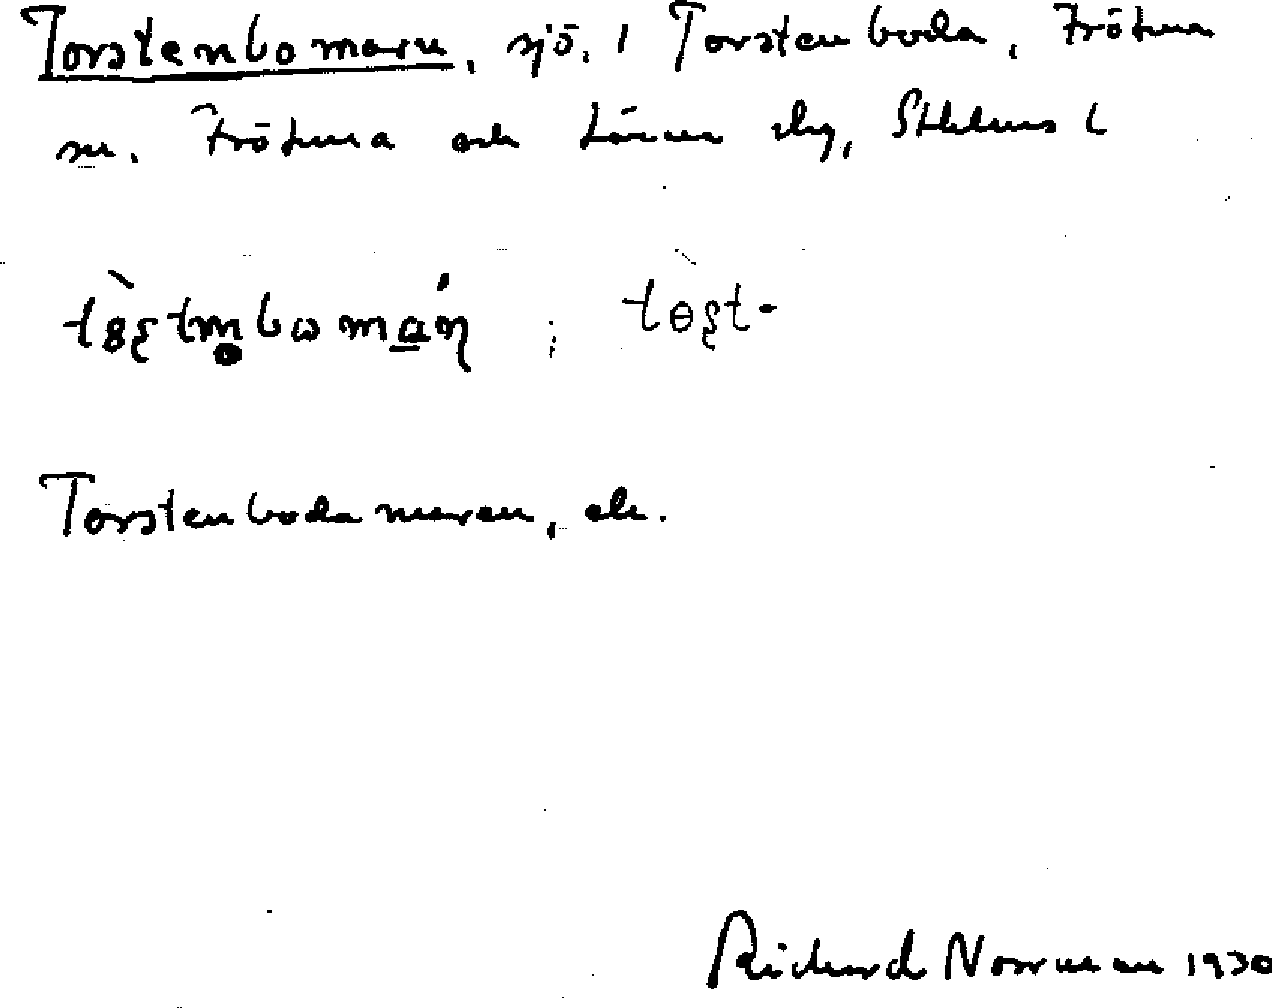 Torstenbomaren, sjö, i Torstenboda, Frötuna
sn. Frötuna och Länna skg, Sthlms l
tɵʂtm̥bωmáη ; tɵʂt-
Torstenbodamaren, ek.
Richard Norrman 1930